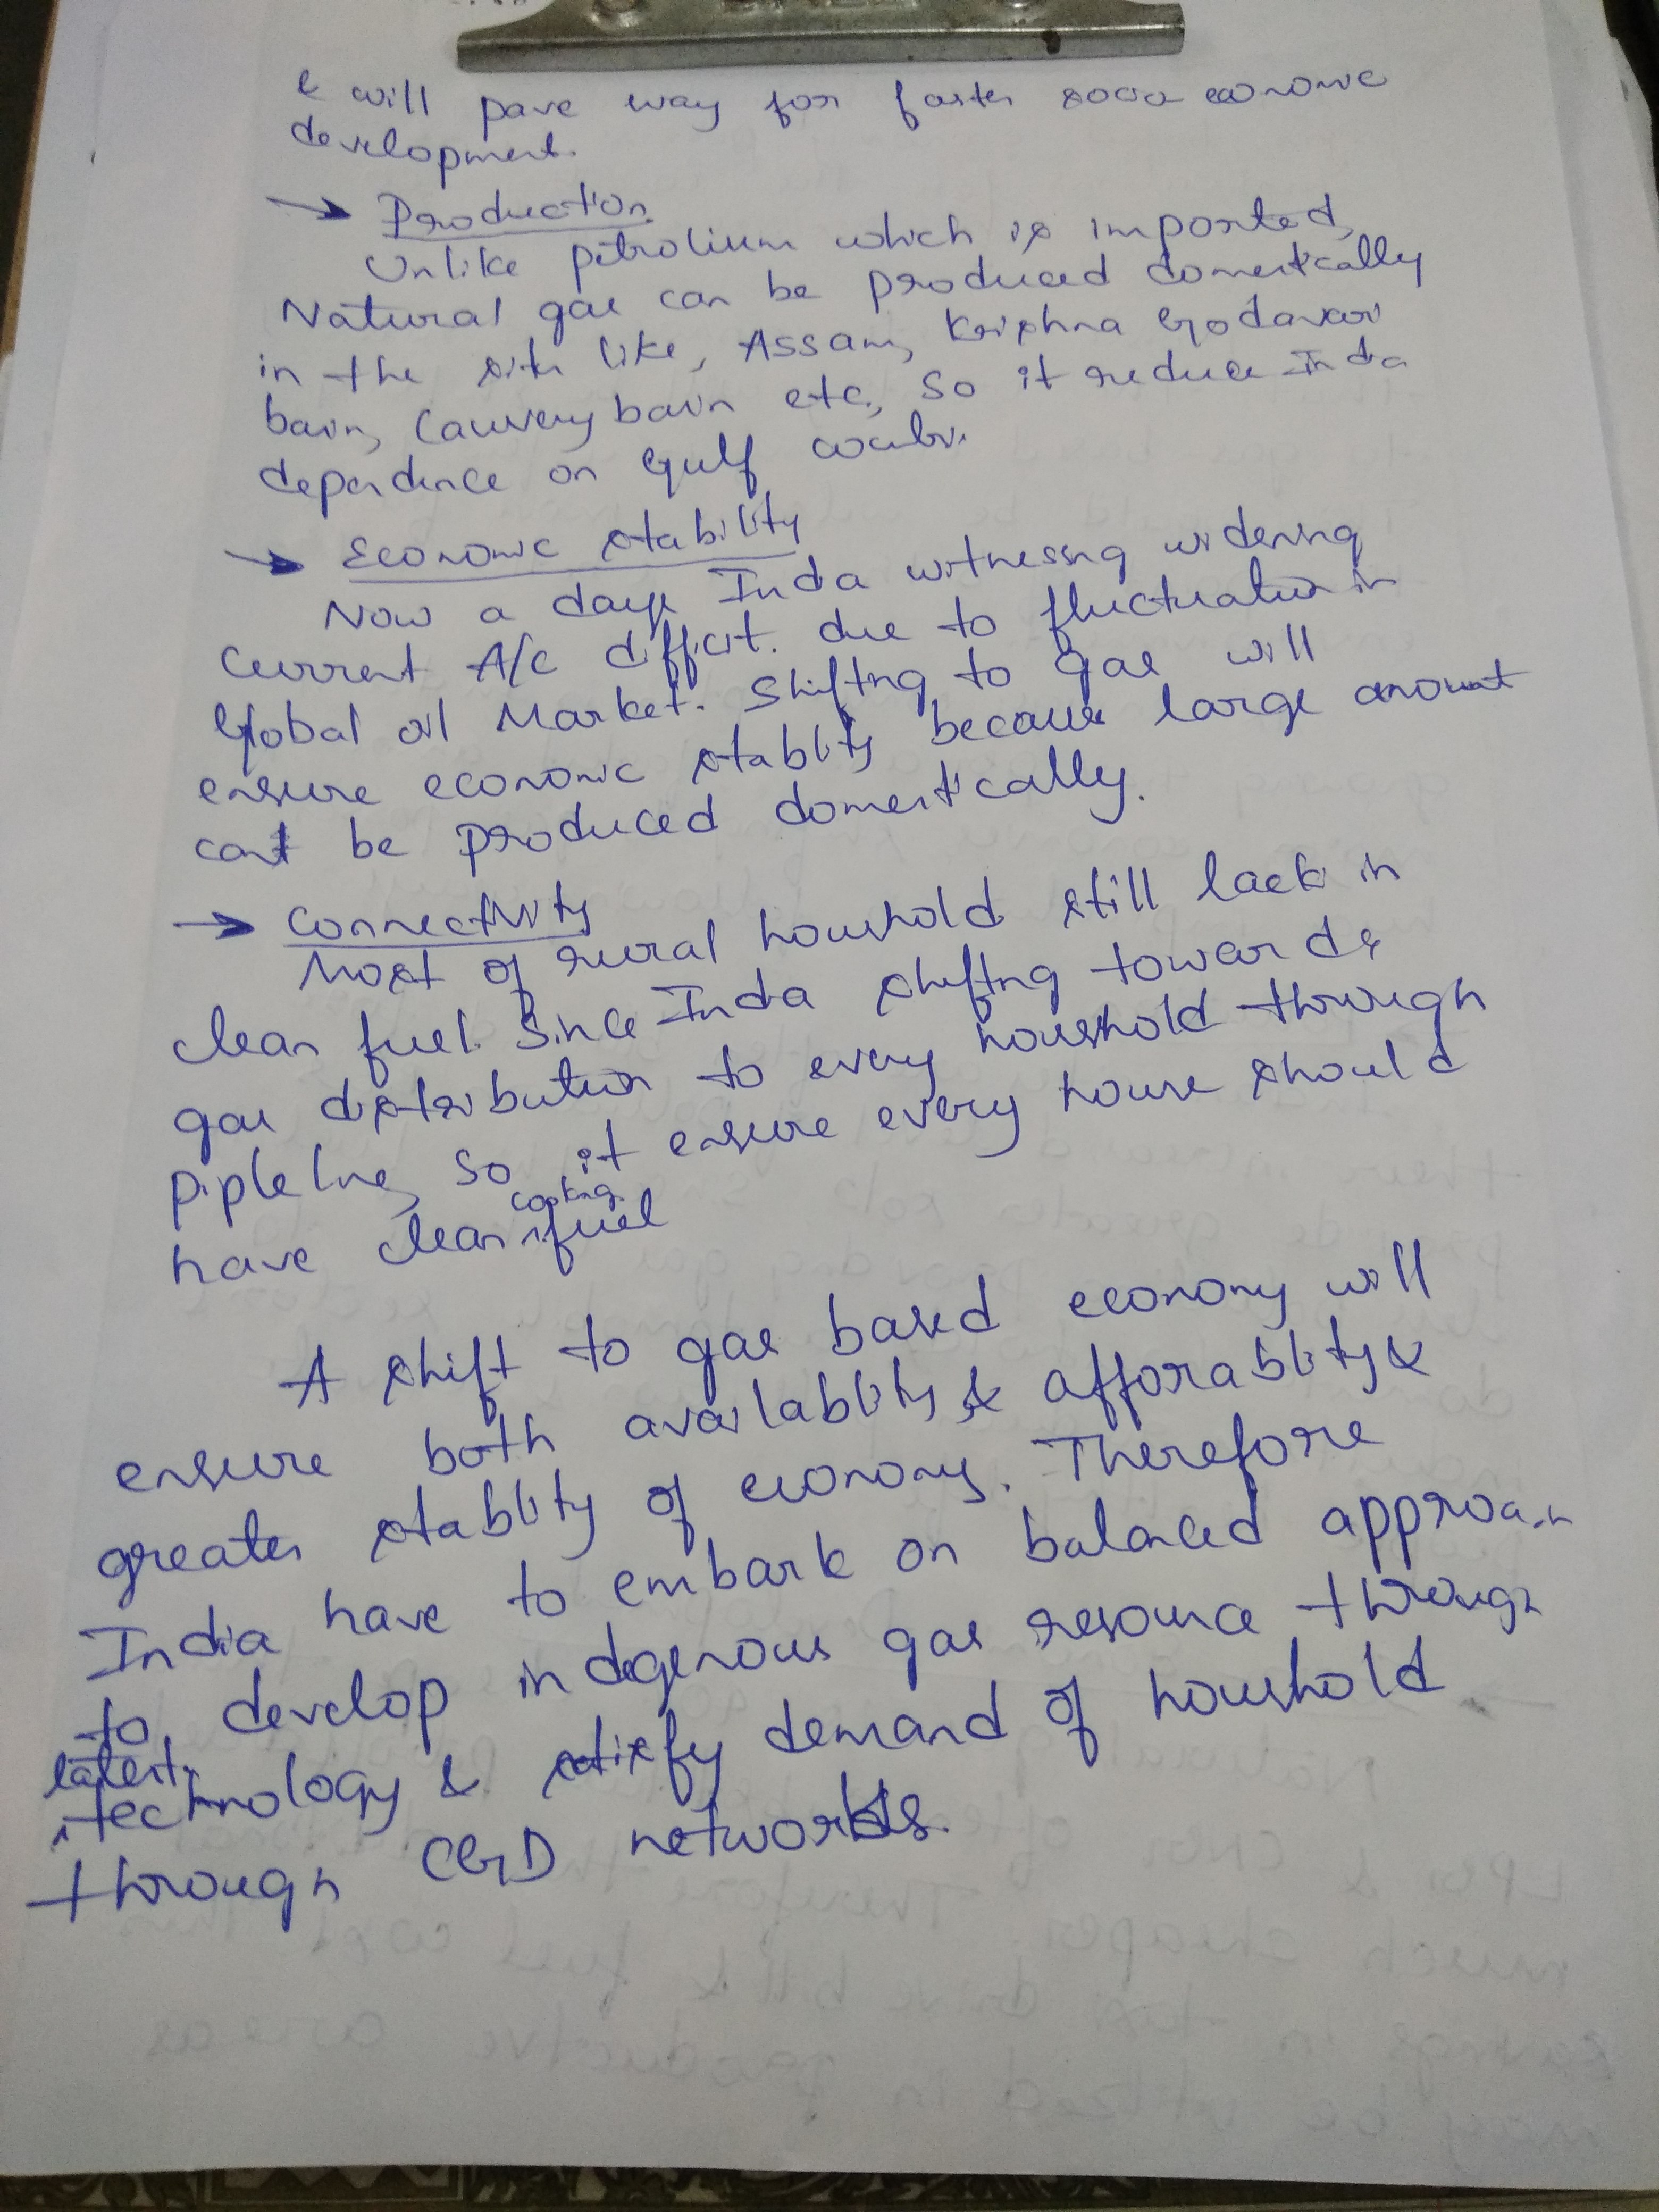 & will pave way for faster socio economic
development.
→ Production
Unlike petrolium which is imported,
Natural gas can be produced domestically
in the site like, Assam, Krishna Godavari
basin, Cauvery basin etc, So it reduce India
dependence on Gulf
→ Economic stability
Now a days India witnessing widening
Current A/c difficit. due to fluctuation in
Global oil Market. Shifting to gas will
ensure economic stablity because large amount
can be produced domestically.
→ Connectivity
Most of rural houshold still lack in
clean fuel. Since India shifting towards
gas distribution to every houshold through
piple line, So it ensure every house should
have clean cooking fuel
A shift to gas based economy will
ensure both availablity & afforablity &
greater stablity of economy. Therefore
India have to embark on balanced approach
to develop indegenous gas resource through
latest technology & satisfy demand of houshold
through CGD networks.